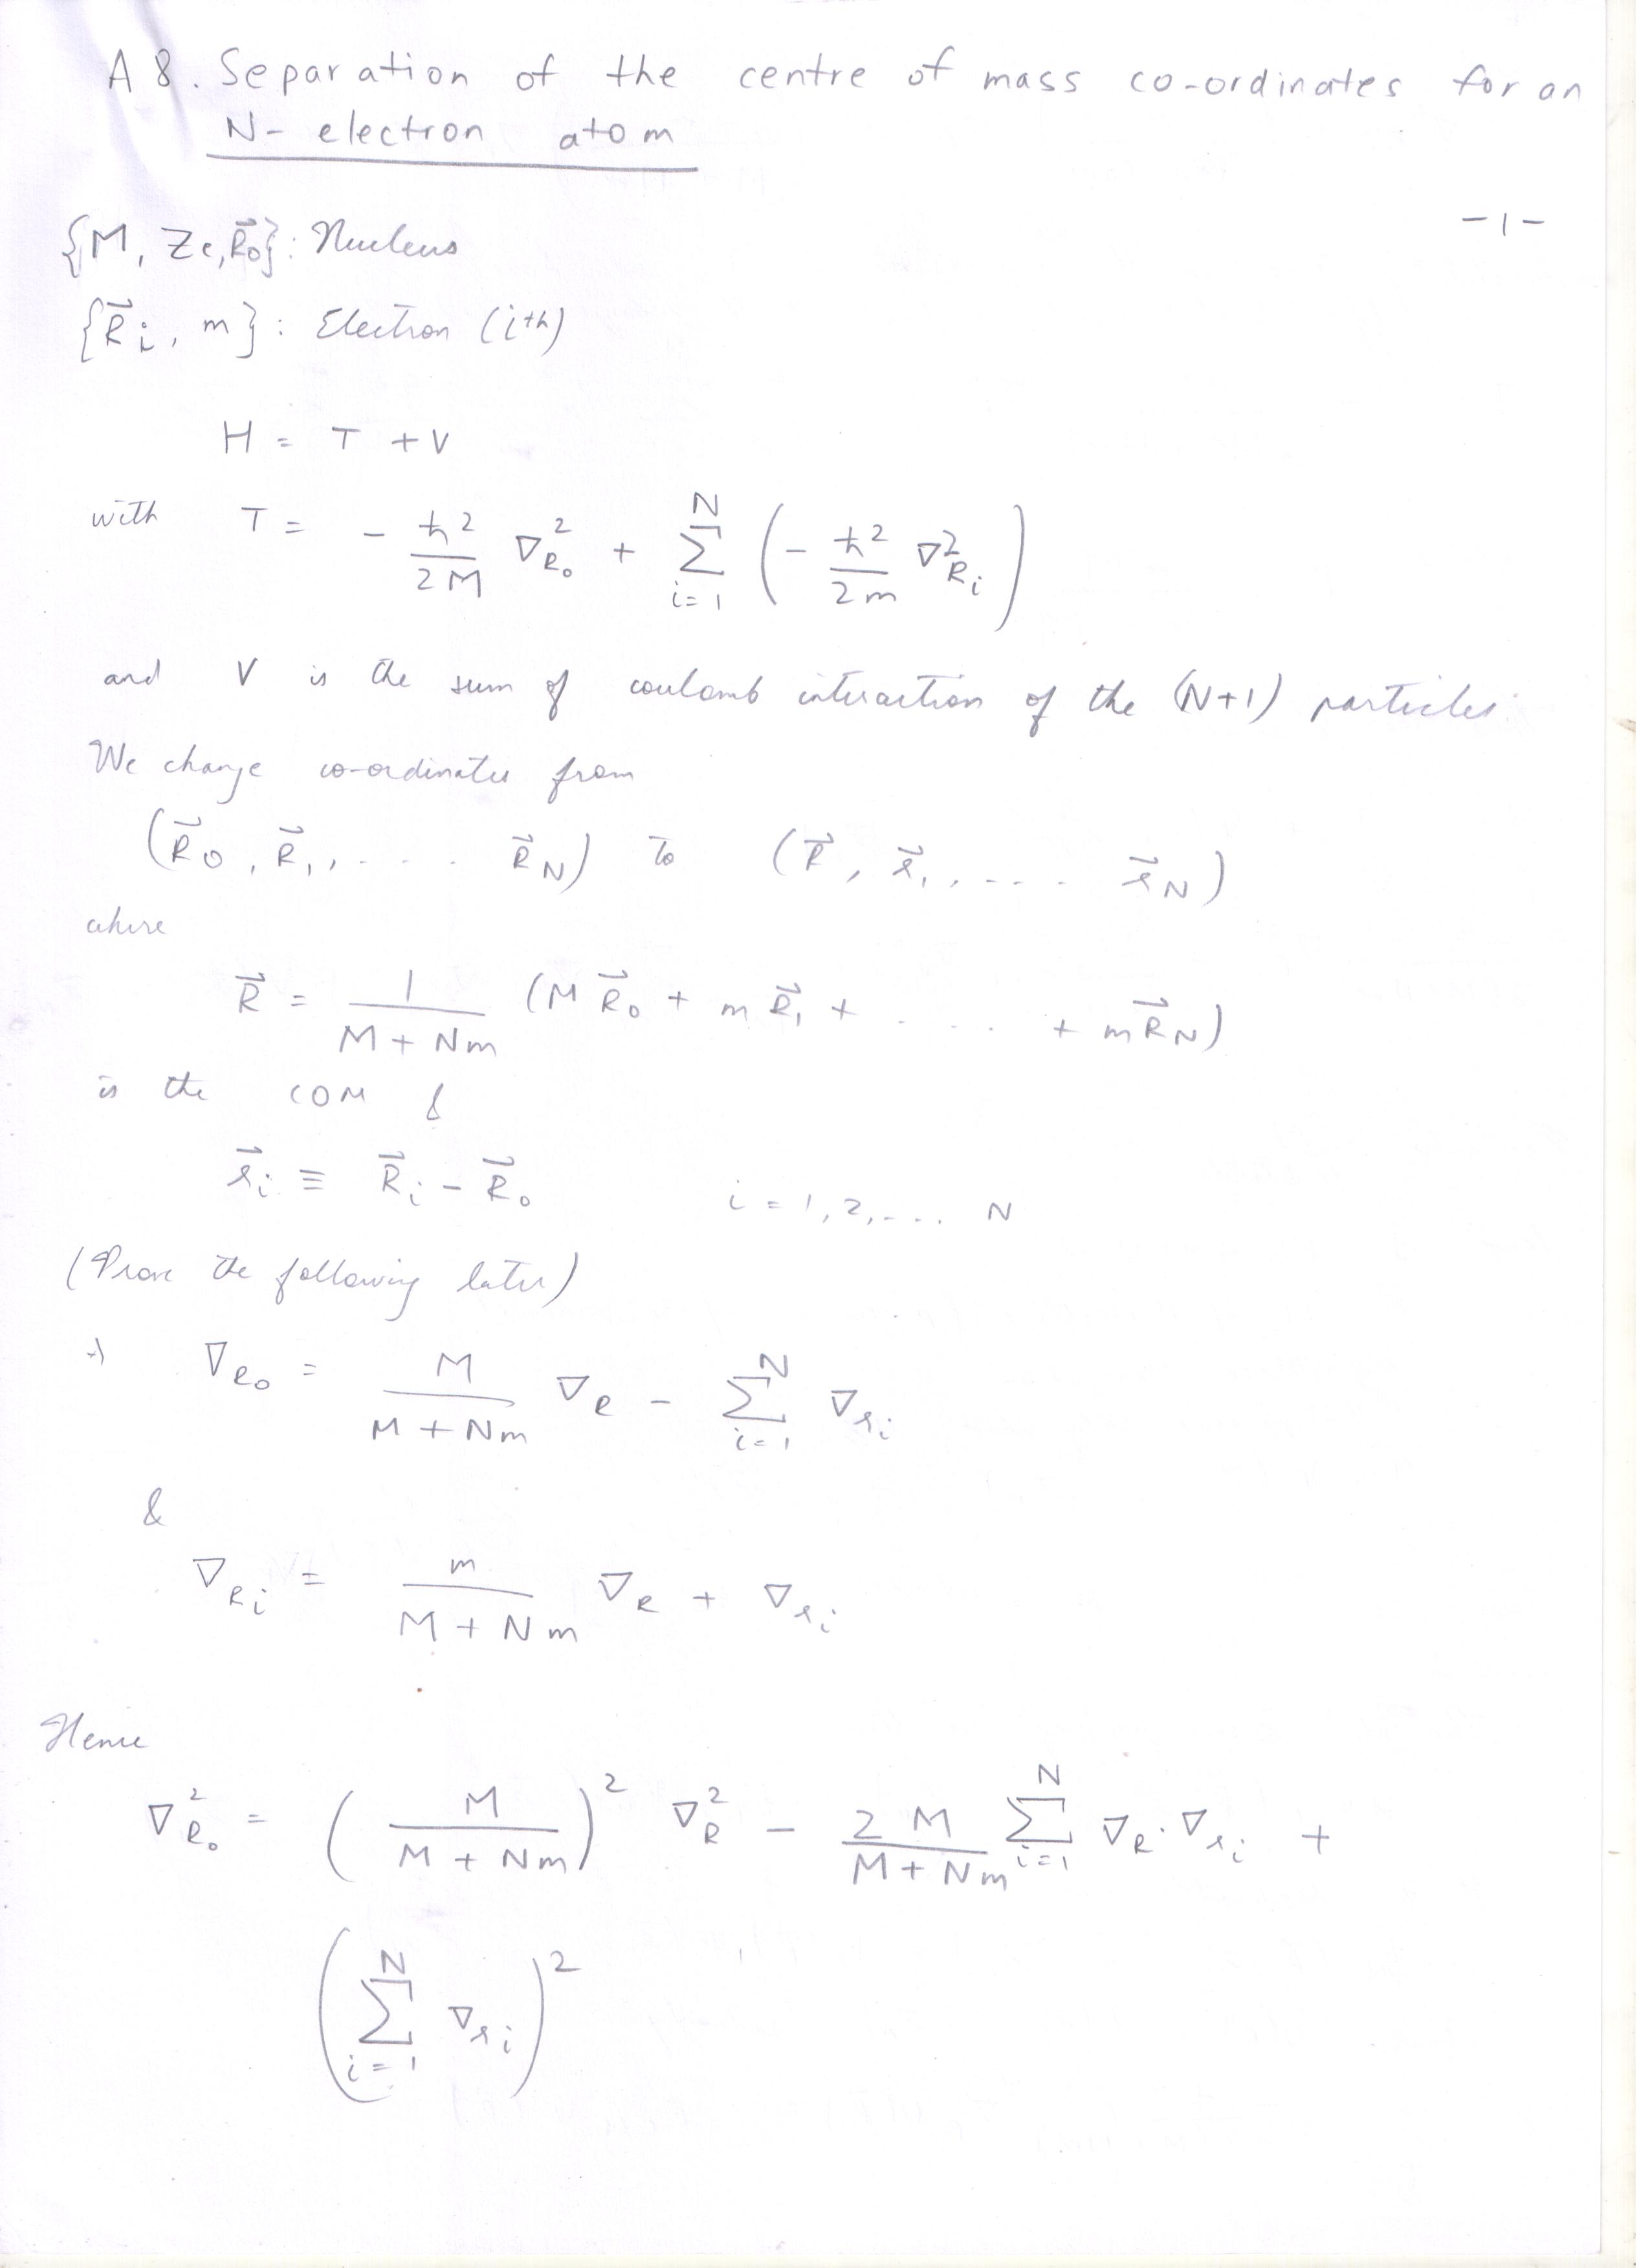 A 8. Separation of the centre of mass co-ordinates for an
N- electron atom
-1-
{M, Ze, R⃗₀} : Nucleus
{R⃗ᵢ, m} : Electron (iᵗʰ)
H = T + V
with T = - ħ²/2M ∇²_R₀ + Σ_{i=1}^{N} (- ħ²/2m ∇²_Rᵢ)
and V is the sum of coulomb interaction of the (N+1) particles
We change co-ordinates from
(R⃗₀, R⃗₁, . . . . R⃗_N) to (R⃗, r⃗₁, . . . . r⃗_N)
where
R⃗ = 1/(M + Nm) (M R⃗₀ + m R⃗₁ + . . . . + m R⃗_N)
is the COM &
r⃗ᵢ ≡ R⃗ᵢ - R⃗₀ i = 1, 2, . . . N
(Prove the following later)
⇒ ∇_R₀ = M/(M + Nm) ∇_R - Σ_{i=1}^{N} ∇_rᵢ
&
∇_Rᵢ = m/(M + Nm) ∇_R + ∇_rᵢ
Hence
∇²_R₀ = (M/(M + Nm))² ∇²_R - 2M/(M + Nm) Σ_{i=1}^{N} ∇_R · ∇_rᵢ +
(Σ_{i=1}^{N} ∇_rᵢ)²